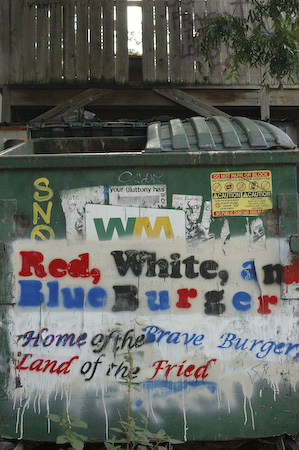 your Gluttony has
DO NOT PARK OR BLOCK
CAUTION CAUTION
WM
Red, White, and
Blue Burger
Home of the Brave Burger
Land of the Fried